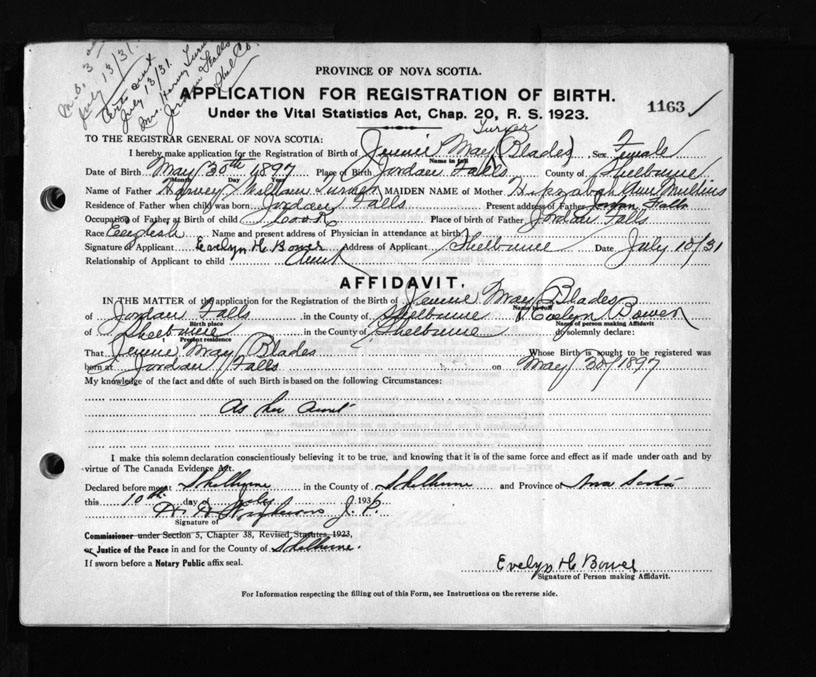 July 13/31.
July 13/31.
Mrs. Harvey Turner
Jordan Falls
Shel Co.
PROVINCE OF NOVA SCOTIA.
APPLICATION FOR REGISTRATION OF BIRTH.
1163
Under the Vital Statistics Act, Chap. 20, R. S. 1923.
TO THE REGISTRAR GENERAL OF NOVA SCOTIA:
Turner
I hereby make application for the Registration of Birth of Jennie May (Blades) Sex Female
Name in full
Date of Birth May 30th 1897 Place of Birth Jordan Falls County of Shelburne
Month Day Year
Name of Father Harvey William Turner MAIDEN NAME of Mother Ann Mullins
Residence of Father when child was born Jordan Falls Present address of Father Jordan Falls
Occupation of Father at Birth of child Cook Place of birth of Father Jordan Falls
Race English Name and present address of Physician in attendance at birth
Signature of Applicant Evelyn H. Bower Address of Applicant Shelburne Date July 10/31
Relationship of Applicant to child Aunt
AFFIDAVIT.
IN THE MATTER of the application for the Registration of the Birth of Jennie May Blades
Name in full
of Jordan Falls in the County of Shelburne I Evelyn Bower
Birth place Name of person making Affidavit
of Shelburne in the County of Shelburne do solemnly declare:
Present residence
That Jennie May Blades Whose Birth is sought to be registered was
born at Jordan Falls on May 30/1897
My knowledge of the fact and date of such Birth is based on the following Circumstances:
As her Aunt
I make this solemn declaration conscientiously believing it to be true, and knowing that it is of the same force and effect as if made under oath and by
virtue of The Canada Evidence Act.
Declared before me at Shelburne in the County of Shelburne and Province of Nova Scotia
this 10th day of July 193
J. P.
Signature of
Commissioner under Section 5, Chapter 38, Revised Statutes, 1923,
or Justice of the Peace in and for the County of Shelburne.
If sworn before a Notary Public affix seal.
Evelyn H Bower
Signature of Person making Affidavit.
For Information respecting the filling out of this Form, see Instructions on the reverse side.